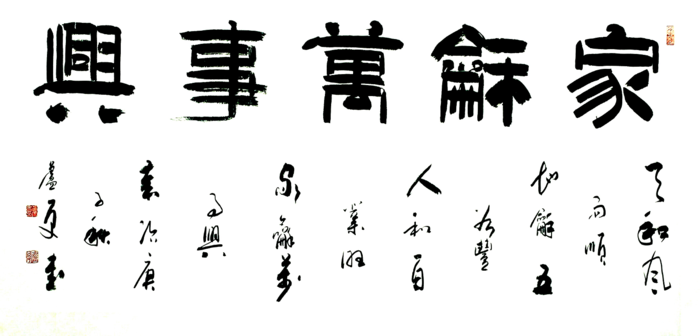 家龢萬事興
天和風
雨順
地龢五
谷豐
人和百
業旺
家龢萬
事興
歲次庚
子秋
書